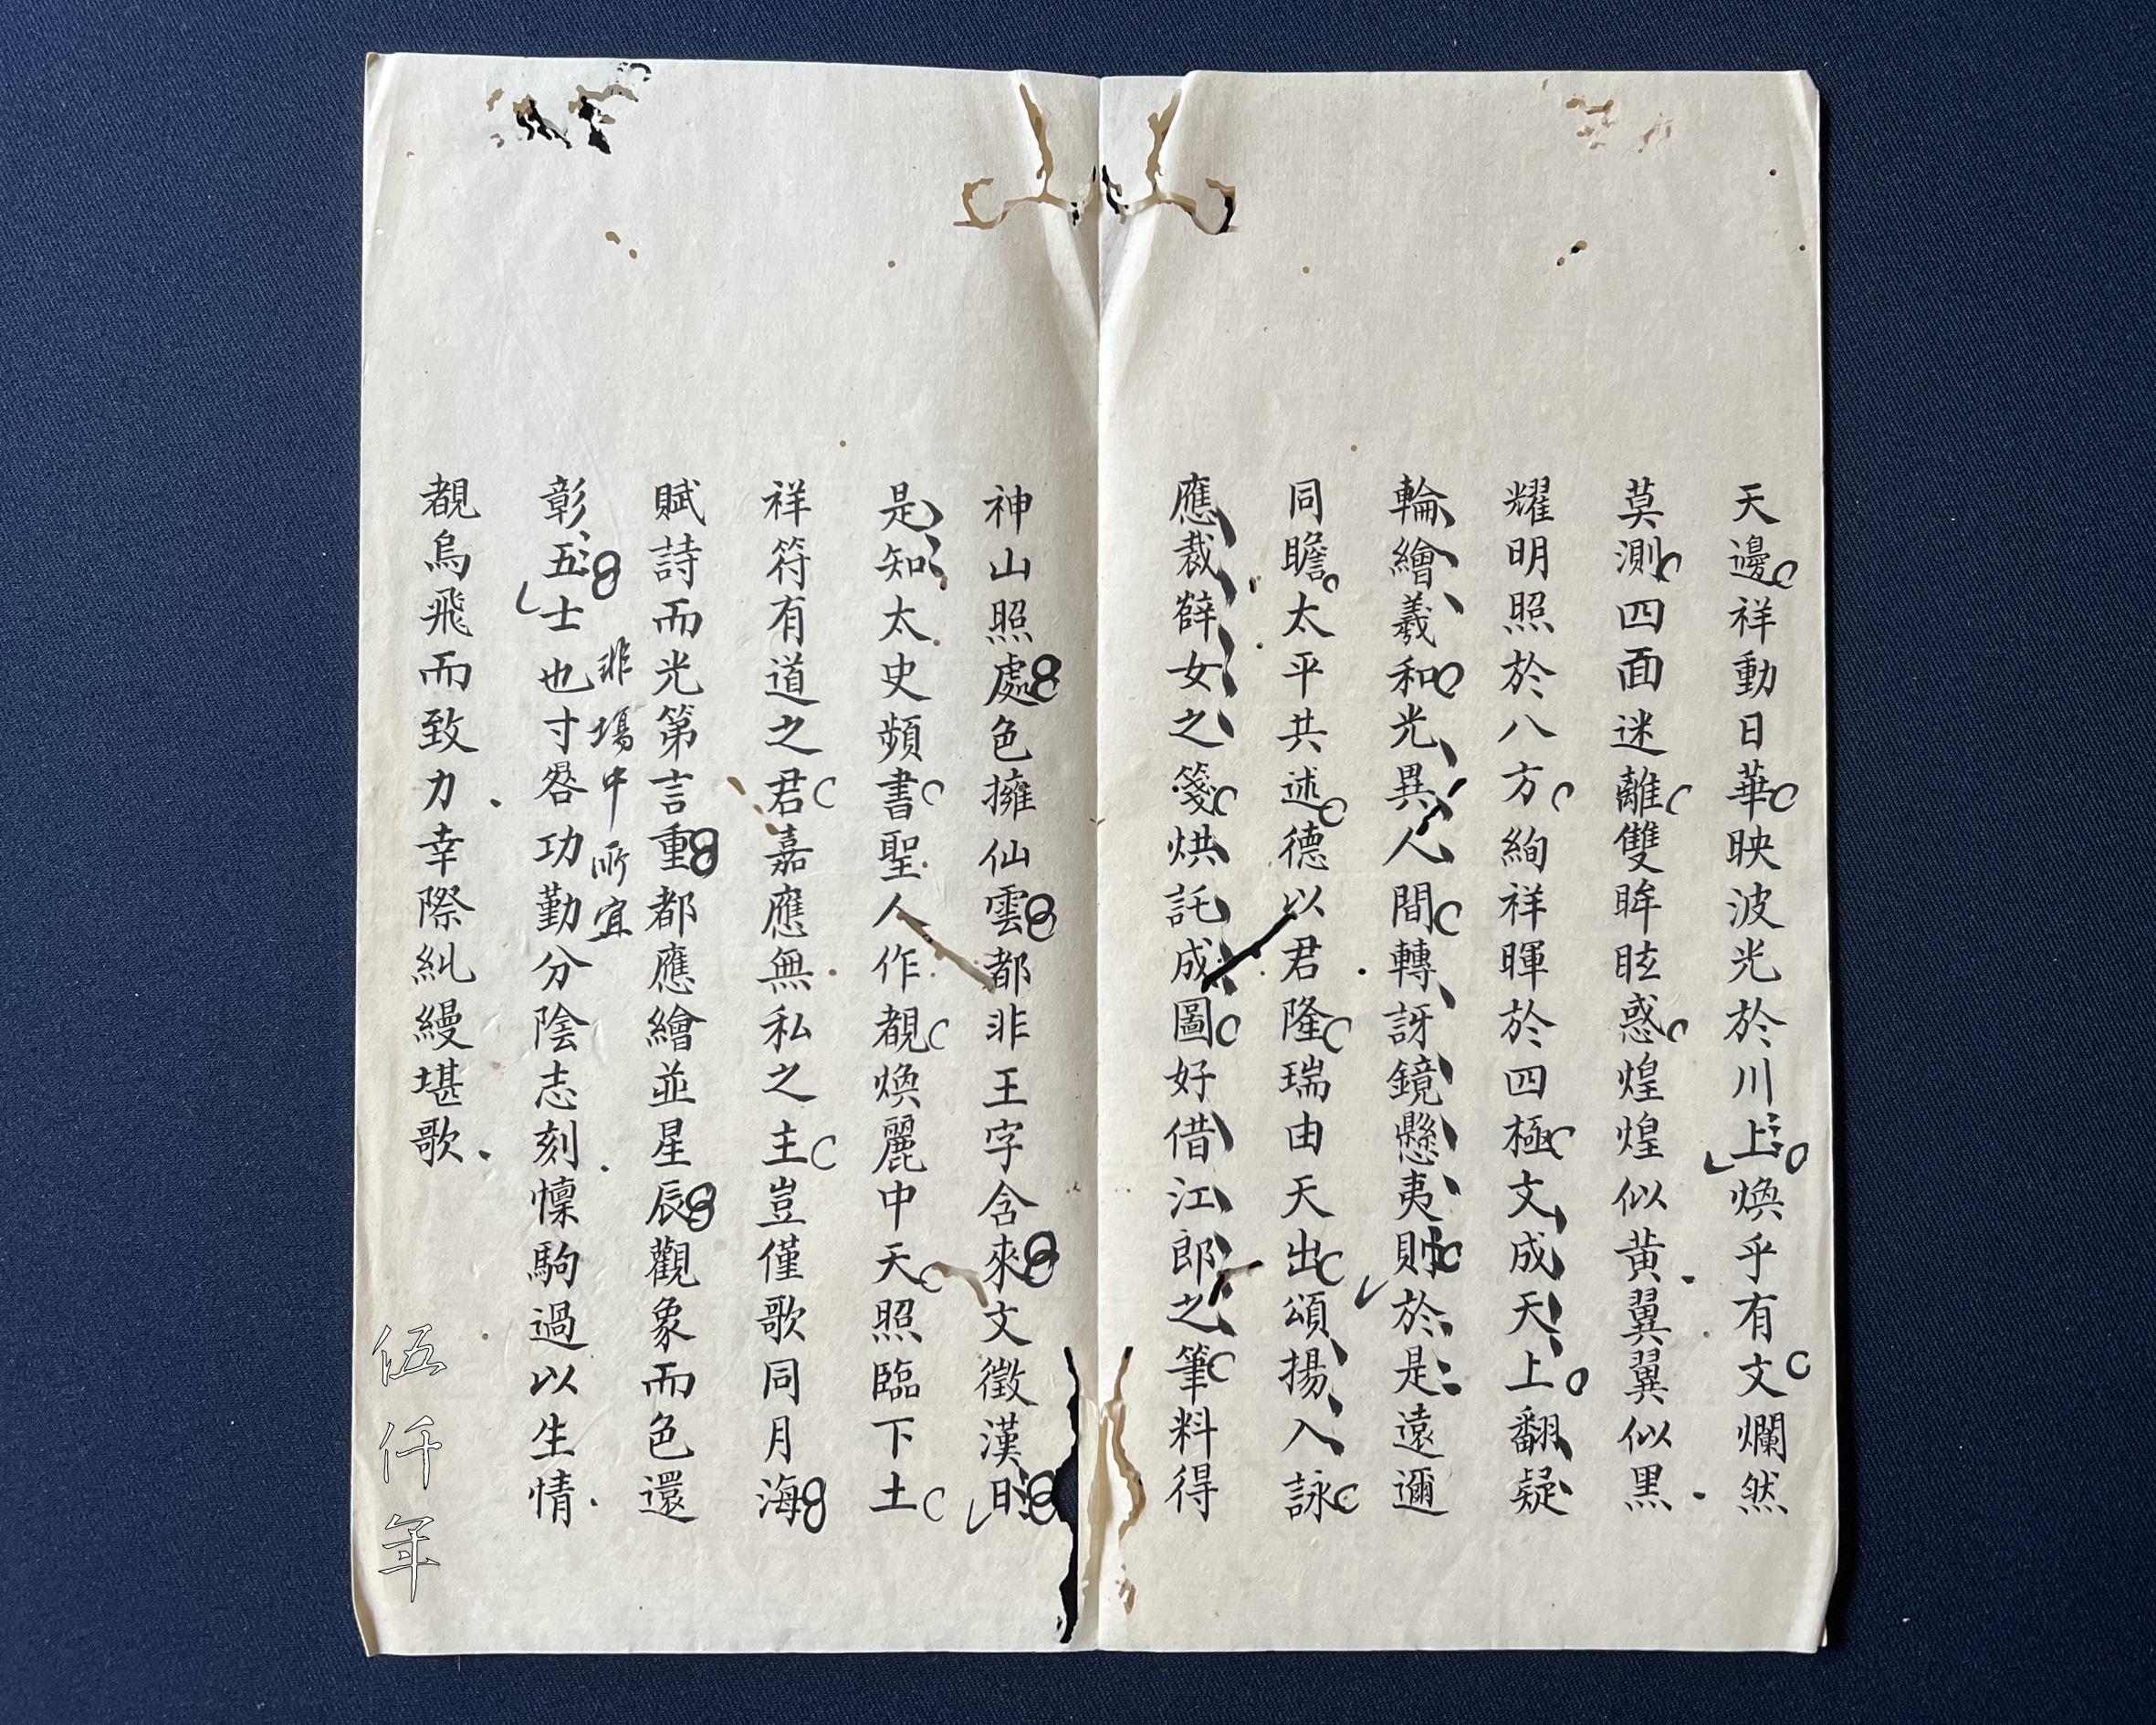 天邊祥動日華映波光於川上煥乎有文爛然
莫測四面迷離雙眸眩惑煌煌似黃翼翼似黑
耀明照於八方絢祥暉於四極文成天上翻疑
輪繪羲和光異人間轉訝鏡懸夷則於是遠邇
同瞻太平共述德以君隆瑞由天出頌揚入詠
應裁薛女之箋烘託成圖好借江郎之筆料得
神山照處色擁仙雲都非王字含來文徵漢日
是知太史頻書聖人作覩煥麗中天照臨下土
祥符有道之君嘉應無私之主豈僅歌同月海
賦詩而光第言重都應繪並星辰觀象而色還
彰五士也寸晷功勤分陰志刻懍駒過以生情
非場中所宜
覩烏飛而致力幸際糺縵堪歌
伍仟年